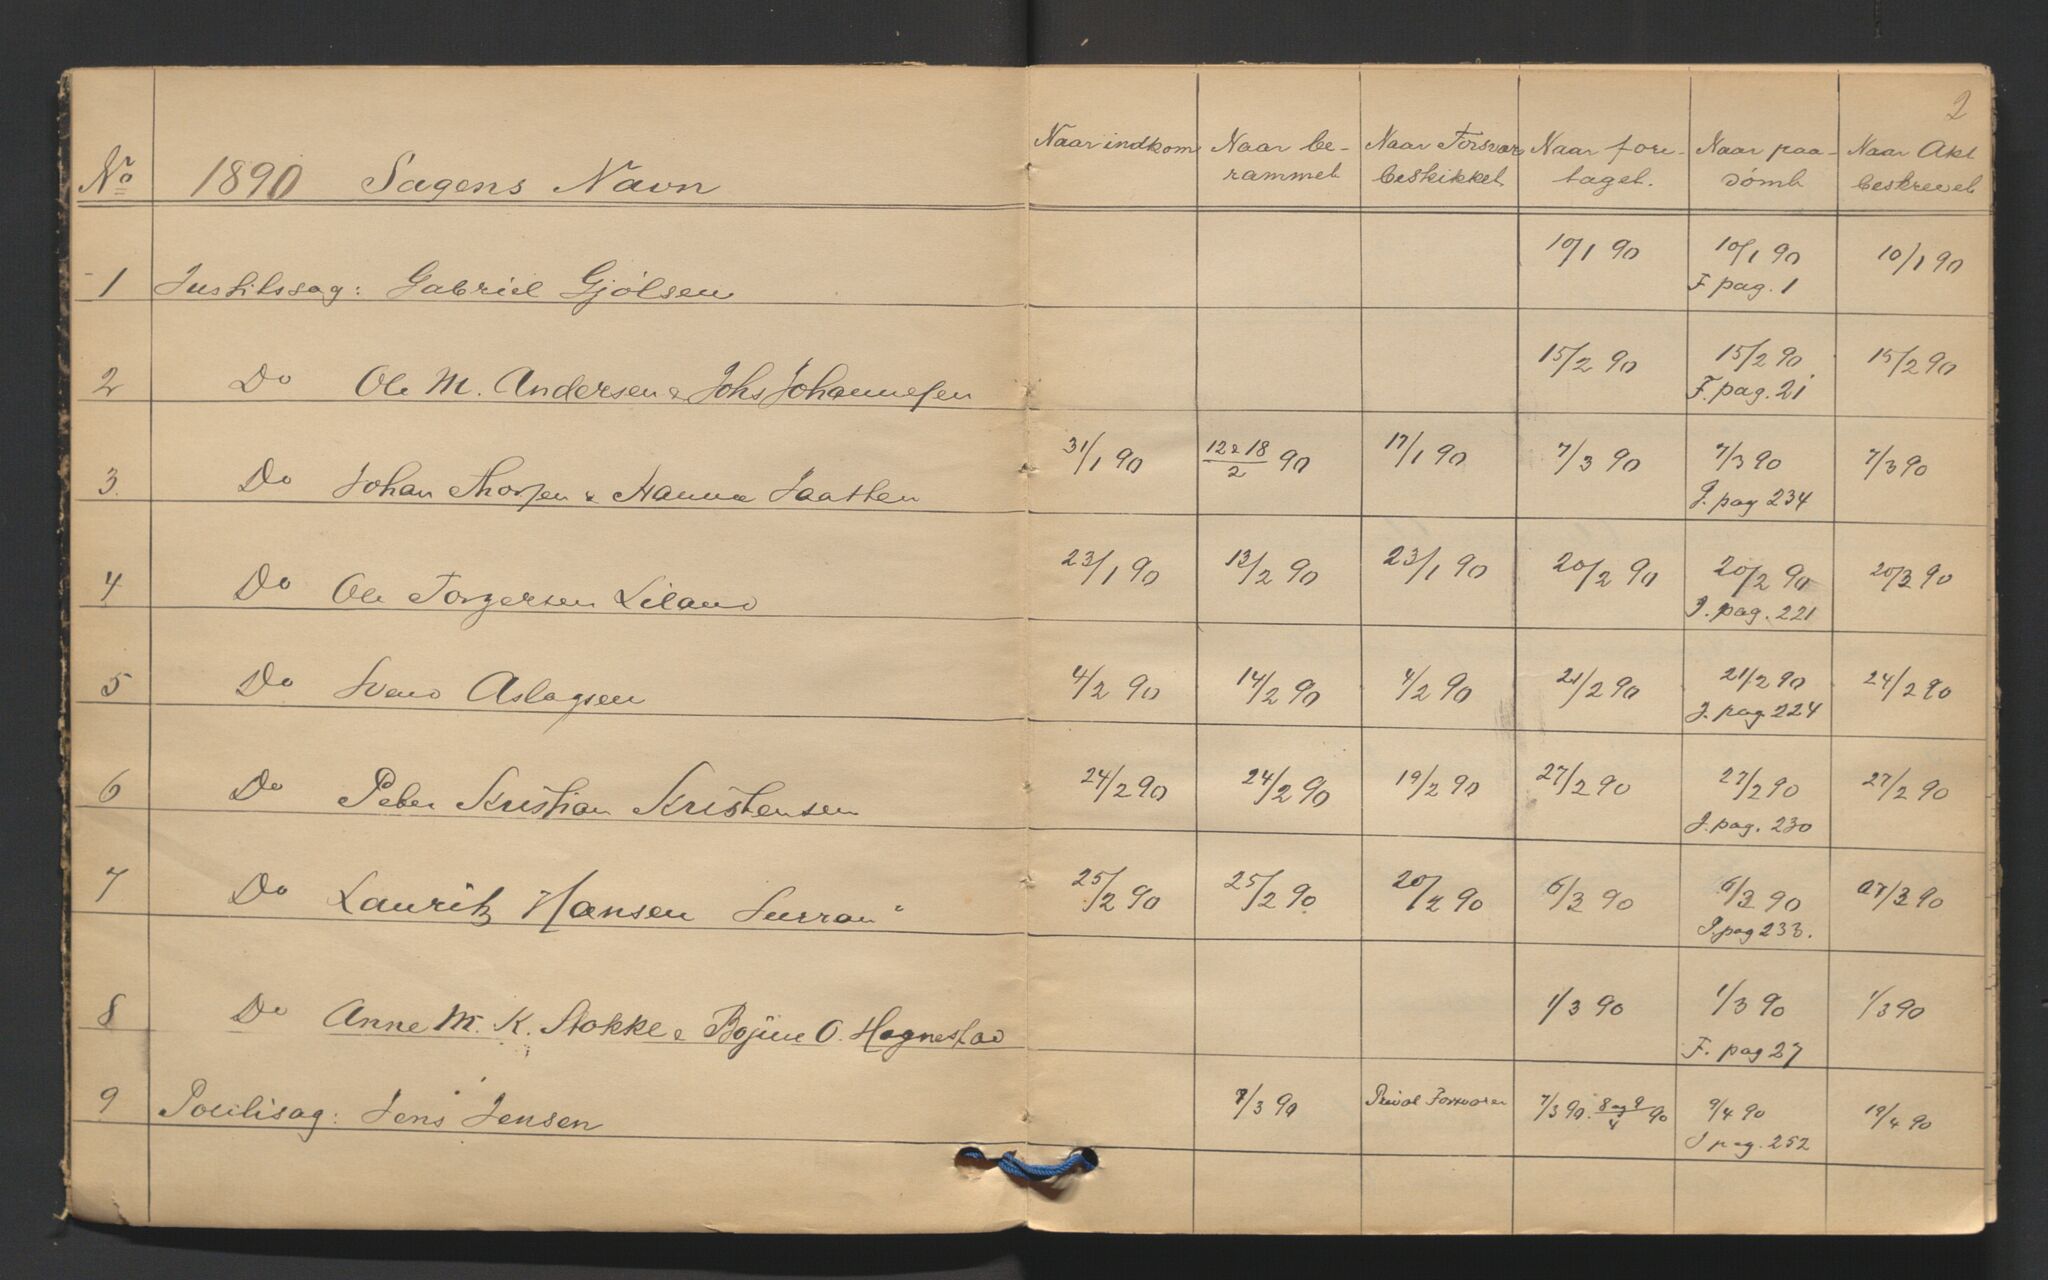 2
No 1890 Sagens Navn Naar indkom Naar be- rammet Naar Forsvar beskikket Naar fore- taget. Naar paa- dömt Naar Akt beskrevet
1 Justitssag: Gabriel Gjölsen 10/1 90 10/1 90 10/1 90
F pag. 1
2 Do Ole M. Andersen & Johs Johannesen 15/2 90 15/2 90 15/2 90
F. pag. 21
3 Do Johan Thorsen & Hanna 31/1 90 12 & 18/2 90 17/1 90 7/3 90 7/3 90 7/3 90
J. pag 234
4 Do Ole Torgersen Liland 23/1 90 13/2 90 23/1 90 20/2 90 20/2 90 20/3 90
J. pag. 221
5 Do Svend Aslagsen 4/2 90 14/2 90 4/2 90 21/2 90 21/2 90 24/2 90
J. pag. 224
6 Do Peter Kristian Kristensen 24/2 90 24/2 90 19/2 90 27/2 90 27/2 90 27/2 90
J. pag. 230
7 Do Lauritz Hansen 25/2 90 25/2 90 20/2 90 6/3 90 6/3 90 /3 90
J. pag 233.
8 Do Anne M. K. Stokke & O. Hognestad 1/3 90 1/3 90 1/3 90
F. pag 27
9 Politisag: Jens Jensen 7/3 90 Privat Forsvarer 7/3 90. 8 og 9/4 90 9/4 90 19/4 90
J pag. 252